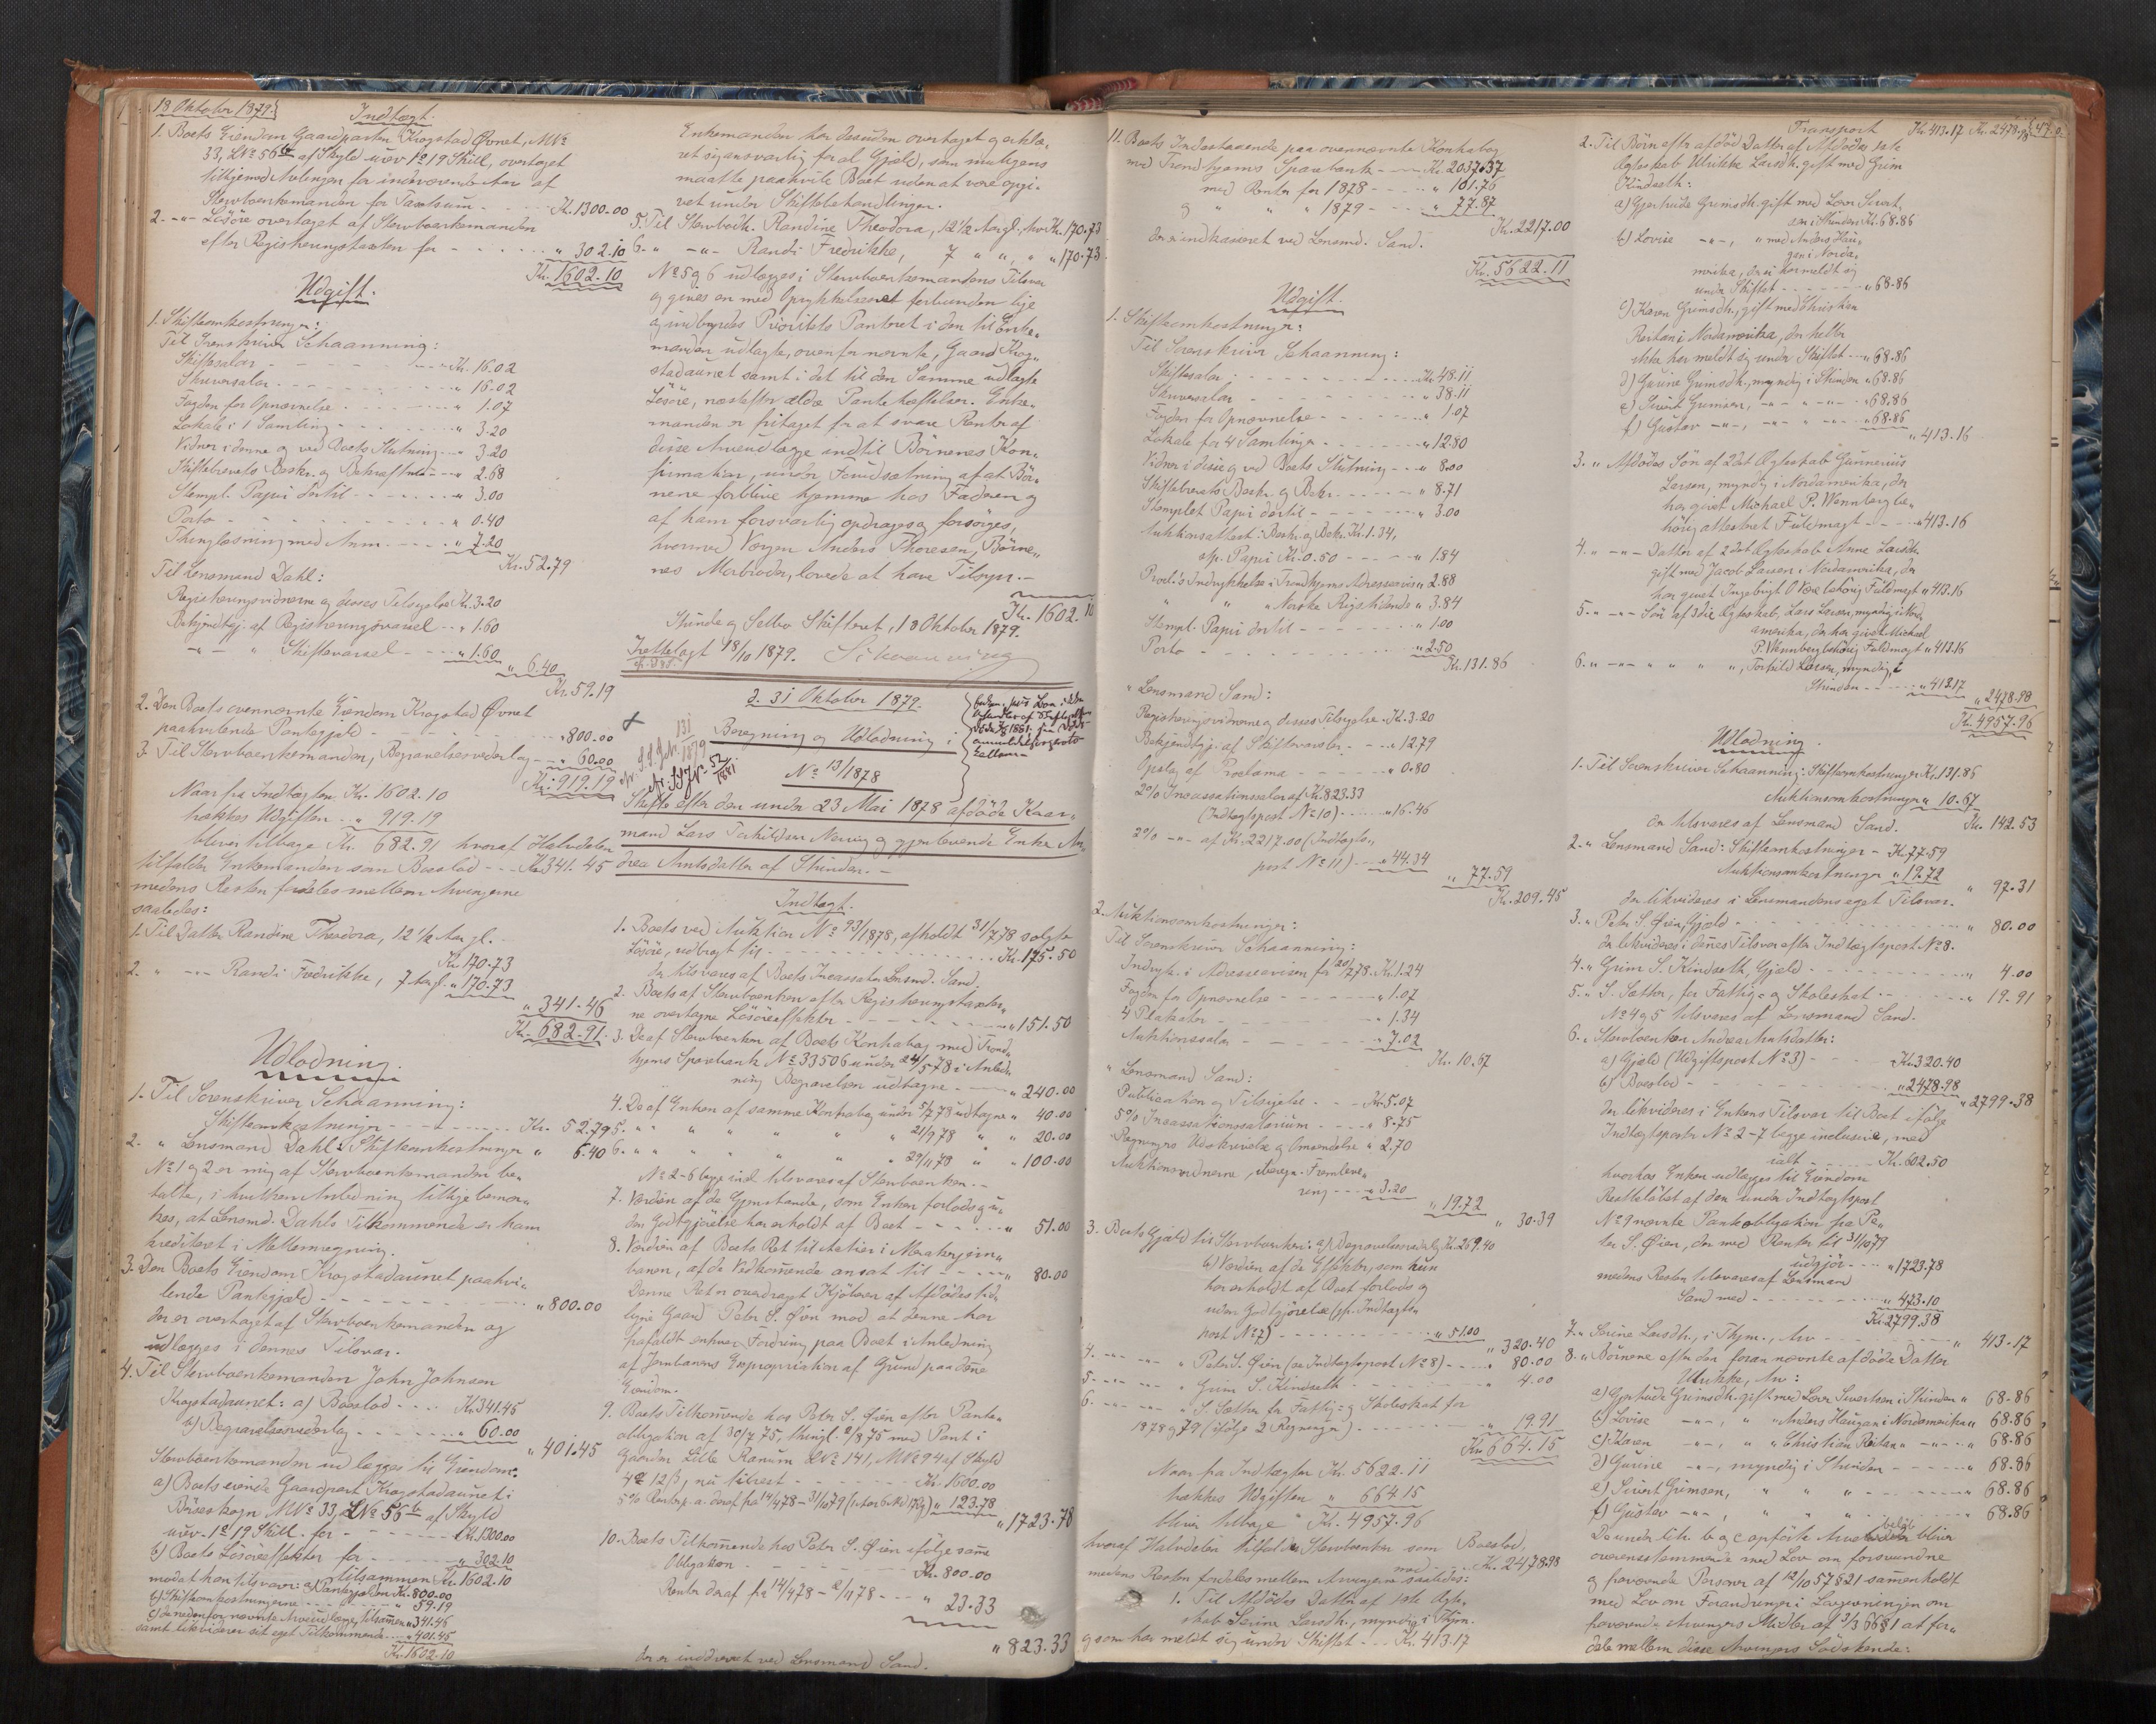 18 Oktober 1879.
Indtægt.
1. Boets Eiendom Gaardparten Krogstad Øvnet, M№
33, L№ 56b af Skyld urev. 1 ort 19 Skill, overtaget
tilligemed Avlingen for indeværende Aar af
Stervboenkemanden for Taxtsum - - - Kr. 1300.00
2. -"- Løsøre overtaget af Stervboenkemanden
efter Registreringstaxten for - - - " 302.10
Kr. 1602.10
Udgift.
1. Skifteomkostninger:
Til Sorenskriver Schaanning:
Skiftesalær - - - Kr. 16.02
Skriversalær - - - " 16.02
Fogden for Opnævnelse - - - " 1.07
Lokale i 1 Samling - - - " 3.20
Vidner i denne og ved Boets Slutning - - " 3.20
Skiftebrevets Beskr. og Bekræftelse - - " 2.68
Stempl. Papir dertil - - - " 3.00
Porto - - - " 0.40
Thinglæsning med Anm. - - - " 7.20
Kr. 52.79
Til Lensmand Dahl:
Registreringsvidnerne og disses Tilsigelse Kr. 3.20
Bekjendtgj. af Registreringsvarsel - - " 1.60
-"- " Skiftevarsel - - - " 1.60
" 6.40
Kr. 59.19
2. Den Boets ovennævnte Eiendom Krogstad Øvnet
paahvilende Pantegjæld - - - " 800.00
3. Til Stervboenkemanden, Begravelsesvederlag - - " 60.00
Kr. 919.19
Naar fra Indtægten Kr. 1602.10
trækkes Udgiften - - " 919.19
bliver tilbage Kr. 682.91 hvoraf Halvdelen
tilfalder Enkemanden som Boeslod - - - Kr. 341.45
medens Resten fordeles mellem Arvingerne
saaledes:
1. Til Datter Randine Theodora, 12 1/2 Aar gl.
Kr. 170.73
2. " -"- Randi Fredrikke, 7 Aar gl. " 170.73
" 341.46
Kr. 682.91
Udlodning.
1. Til Sorenskriver Schaanning:
Skifteomkostninger - - - Kr. 52.79
2. " Lensmand Dahl: Skifteomkostninger " 6.40
№ 1 og 2 er mig af Stervboenkemanden be-
talte, i hvilken Anledning tillige bemær-
kes, at Lensmd. Dahls Tilkommende er ham
krediteret i Mellemregning.
3. Den Boets Eiendom Krogstadaunet paahvi-
lende Pantegjæld - - - " 800.00
der er overtaget af Stervboenkemanden og
udlægges i dennes Tilsvar.
4. Til Stervboenkemanden John Johnsen
Krogstadaunet: a) Boeslod - - - Kr. 341.45
b) Begravelsesvederlag - - - " 60.00
" 401.45
Stervboenkemanden udlægges til Eiendom:
a) Boets eiende Gaardpart Krogstadaunet i
Børseskogn M№ 33, L№ 56b af Skyld
urev. 1 ort 19 Skill. for - - - Kr. 1300.00
b) Boets Løsøreeffekter for - - - " 302.10
tilsammen Kr. 1602.10
modat han tilsvarer: a) Pantegjælden Kr. 800.00
b) Skifteomkostningerne - - - " 59.19
c) de nedenfor nævnte Arveudlæg, tilsammen " 341.46
samt likviderer sit eget Tilkommende - - " 401.45
Kr. 1602.10
Enkemanden har desuden overtaget og erklæ-
ret sig ansvarlig for al Gjæld, som muligens
maatte paahvile Boet uden at være opgi-
vet under Skiftebehandlingen.
5. Til Stervbodtr. Randine Theodora, 12 1/2 Aar gl., Arv Kr. 170.73
6. " -"- Randi Fredrikke, 7 " ", " " 170.73
№ 5 og 6 udlægges i Stervboenkemandens Tilsvar
og gives en med Oprykkelsesret forbunden lige
og indbyrdes Prioritets Panteret i den til Enke-
manden udlagte, ovenfor nævnte, Gaard Krog-
stadaunet samt i det til den Samme udlagte
Løsøre, næstefter ældre Pantehæftelser. Enke-
manden er fritaget for at svare Renter af
disse Arveudlægge indtil Børnenes Kon-
firmation, under Forudsætning af at Bør-
nene forblive hjemme hos Faderen og
af ham forsvarlig opdrages og forsørges,
hvormed Værgen Anders Thoresen, Børne-
nes Morbroder, lovede at have Tilsyn. -
Kr. 1602.10
Strinde og Selbo Skifteret, 18 Oktober 1879.
Irettelagt 18/10 1879. Schaanning
d. 31 Oktober 1879.
Beregning og Udlodning i
№ 13/1878
Skifte efter den under 23 Mai 1878 afdøde Kaar-
mand Lars Torkildsen Nervig og gjenlevende Enke An-
drea Arntsdatter af Strinden. -
Indtægt.
1. Boets ved Auktion № 93/1878, afholdt 31/7 78 solgte
Løsøre, udbragt til - - - Kr. 175.50
der tilsvares af Boets Incassator Lensmd. Sand.
2. Boets af Stervboenken efter Registreringstaxter-
ne overtagne Løsøreeffekter - - - " 151.50
3. De af Stervboenken af Boets Kontrabog med Trond-
hjems Sparebank № 33506 under 24/5 78 i Anled-
ning Begravelsen udtagne - - - " 240.00
4. De af Enken af samme Kontrabog under 5/7 78 udtagne " 40.00
5. " " " " " " 21/9 78 " " 20.00
6. " " " " " " 29/11 78 " " 100.00
№ 2-6 begge incl. tilsvares af Stervboenken. -
7. Værdien af de Gjenstande, som Enken forlods og u-
den Godtgjørelse har erholdt af Boet - - - " 51.00
8. Værdien af Boets Ret til Aktier i Merakerjern-
banen, af de Vedkommende ansat til - - - " 80.00
Denne Ret er overdraget Kjøberen af Afdødes tid-
ligere Gaard Peter S. Øien mod at denne har
frafaldt enhver Fordring paa Boet i Anledning
af Jernbanens Expropriation af Grund paa denne
Eiendom.
9. Boets Tilkommende hos Peter S. Øien efter Pante-
obligation af 30/7 75, thingl. 2/8 75 med Pant i
Gaarden Lille Ranum L№ 141, M№ 94 af Skyld
- - - Kr. 1600.00
5% Renter p. a. deraf fra 14/4 78 - 31/10 79 " 123.78
" 1723.78
10. Boets Tilkommende hos Peter S. Øien ifølge samme
Obligation - - - Kr. 800.00
Renter deraf fra 14/4 78 - 2/11 78 - - - " 23.33
" 823.33
der er inddrevet ved Lensmand Sand.
11. Boets Indestaaende paa ovennævnte Kontrabog
med Trondhjems Sparebank - - - Kr. 2037.37
med Renter for 1878 - - - " 101.76
og " " " 1879 - - - " 77.87
Kr. 2217.00
der er indkasseret ved Lensmd. Sand.
Kr. 5622.11
Udgift.
1. Skifteomkostninger:
Til Sorenskriver Schaanning:
Skiftesalær - - - Kr. 48.11
Skriversalær - - - " 38.11
Fogden for Opnævnelse - - - " 1.07
Lokale for 4 Samlinger - - - " 12.80
Vidner i disse og ved Boets Slutning - - " 8.00
Skiftebrevets Beskr. og Bekr. - - - " 8.71
Stemplet Papir dertil - - - " 3.00
Auktionsattest: Beskr. og Bekr. Kr. 1.34,
st. Papir Kr. 0.50 - - - " 1.84
Procl.'s Indrykkelse i Trondhjems Adresseavis " 2.88
" " " Norske Rigstidende " 3.84
Stempl. Papir dertil - - - " 1.00
Porto - - - " 2.50
Kr. 131.86
" Lensmand Sand:
Registreringsvidnerne og disses Tilsigelse - Kr. 3.20
Bekjendtgj. af Skiftevarsler - - - " 12.79
Opslag af Proclama - - - " 0.80
2% Incassationssalær af Kr. 823.33
(Indtægtspost № 10) - - - " 16.46
2% -"- af Kr. 2217.00 (Indtægts-
post № 11) - - " 44.34
" 77.59
Kr. 209.45
2. Auktionsomkostninger:
Til Sorenskriver Schaanning:
Indryk. i Adresseavisen for 20/7 78. Kr. 1.24
Fogden for Opnævnelse - - - " 1.07
4 Plakater - - - " 1.34
Auktionssalær - - - " 7.02
Kr. 10.67
" Lensmand Sand:
Publication og Tilsigelse - - - Kr. 5.07
5% Incassationssalarium - - - " 8.75
Regningers Udskrivelse og Omsendelse " 2.70
Auktionsvidnerne, beregn. Fremleve-
ring - - - " 3.20
" 19.72
" 30.39
3. Boets Gjæld til Stervboenken: a) Begravelsesvederlag Kr. 269.40
b) Værdien af de Effekter, som hun
har erholdt af Boet forlods og
uden Godtgjørelse (jfr. Indtægts-
post № 7) - - - " 51.00
" 320.40
4. -"- -"- " Peter S. Øien (se Indtægtspost № 8) - - " 80.00
5. -"- -"- " Grim S. Kindseth - - - " 4.00
6. -"- -"- " S. Sæther for Fattig- og Skoleskat for
1878 og 79 (ifølge 2 Regninger) - - - " 19.91
Kr. 664.15
Naar fra Indtægten Kr. 5622.11
trækkes Udgiften " 664.15
bliver tilbage Kr. 4957.96
hvoraf Halvdelen tilfalder Stervboenken som Boeslod,
med - - Kr. 2478.98
medens Resten fordeles mellem Arvingerne saaledes:
1. Til Afdødes Datter af 1ste Ægte-
skab Serine Larsdtr., myndig i Thjm.
og som har meldt sig under Skiftet - - - Kr. 413.17
Transport Kr. 413.17 Kr. 2478.98
2. Til Børn efter afdød Datter af Afdødes 1ste
Ægteskab Ulrikke Larsdtr. gift med Grim
Kindseth:
a) Gjertrude Grimsdtr. gift med Lorns Sivert-
sen i Strinden Kr. 68.86
b) Lovise -"-, " med Anders Hau-
gen i Norda-
merika, der ei har meldt sig
under Skiftet - - - " 68.86
c) Karen Grimsdtr., gift med Christian
Reitan i Nordamerika, der heller
ikke har meldt sig under Skiftet - - " 68.86
d) Gurine Grimsdtr., myndig i Strinden " 68.86
e) Sivert Grimsen, -"- " -"- - " 68.86
f) Gustav -"-, -"- " -"- - " 68.86
" 413.16
3. " Afdødes Søn af 2det Ægteskab Gunnerius
Larsen, myndig i Nordamerika, der
har givet Michael P. Wennberg be-
hørig attesteret Fuldmagt - - - " 413.16
4. " -"- Datter af 2det Ægteskab Anne Larsdtr.
gift med Jacob Larsen i Nordamerika, der
har givet Ingebrigt O. Røe behørig Fuldmagt " 413.16
5. " -"- Søn af 3die Ægteskab, Lars Larsen, myndig i Nord-
amerika, der har givet Michael
P. Wennberg behørig Fuldmagt " 413.16
6. " -"- " " " ", Torkild Larsen, myndig i
Strinden - - - " 413.17
" 2478.98
Kr. 4957.96
Udlodning.
1. Til Sorenskriver Schaanning: Skifteomkostninger Kr. 131.86
Auktionsomkostninger " 10.67
der tilsvares af Lensmand Sand. Kr. 142.53
2. " Lensmand Sand: Skifteomkostninger - Kr. 77.59
Auktionsomkostninger " 19.72
" 97.31
der likvideres i Lensmandens eget Tilsvar.
3. " Peter S. Øien, Gjæld - - - " 80.00
der likvideres i dennes Tilsvar efter Indtægtspost № 8.
4. " Grim S. Kindseth, Gjæld - - - " 4.00
5. " S. Sæther, for Fattig- og Skoleskat - - " 19.91
№ 4 og 5 tilsvares af Lensmand Sand.
6. " Stervboenken Andrea Arntsdatter:
a) Gjæld (Udgiftspost № 3) - - - Kr. 320.40
b) Boeslod - - - " 2478.98
" 2799.38
der likvideres i Enkens Tilsvar til Boet ifølge
Indtægtsposter № 2-7 begge inclusive, med
ialt - - - Kr. 602.50
hvorhos Enken udlægges til Eiendom
Restbeløbet af den under Indtægtspost
№ 9 nævnte Panteobligation fra Pe-
ter S. Øien, der med Renter til 31/10 79
udgjør - - - " 1723.78
medens Resten tilsvares af Lensmand
Sand med - - - " 473.10
Kr. 2799.38
7. " Serine Larsdtr., i Thjm., Arv - - - " 413.17
8. " Børnene efter den foran nævnte afdøde Datter
Ulrikke, Arv:
a) Gjertrude Grimsdtr. gift med Lorns Sivertsen i Strinden " 68.86
b) Lovise -"-, " " Anders Haugan i Nordamerika " 68.86
c) Karen -"-, " " Christian Reitan " -"- - " 68.86
d) Gurine -"-, myndig i Strinden - - - " 68.86
e) Sivert Grimsen, " " " - - - " 68.86
f) Gustav -"-, " " " - - - " 68.86
De under litr. b og c anførte Arvebeløb bliver
overensstemmende med Lov om forsvundne
og fraværende Personer af 12/10 57 § 21 sammenholdt
med Lov om Forandringer i Lovgivningen om
fraværende Arvingers Midler af 3/3 66 § 1 at for-
dele mellem disse Arvingers Sødskende: